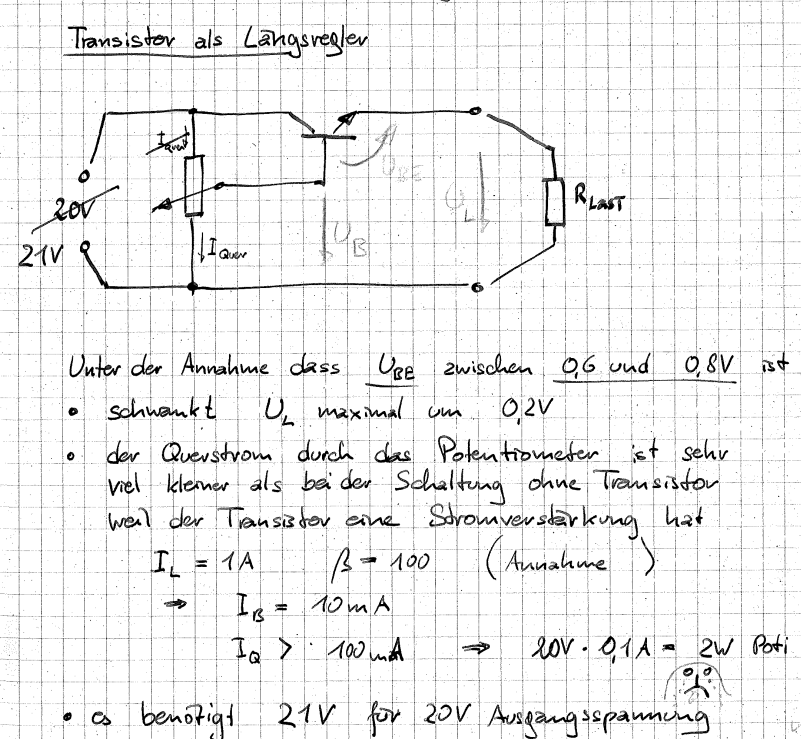 Transistor als Längsregler
I Quer
20V
21V
I Quer
U BE
U B
U L
R LAST
Unter der Annahme dass U BE zwischen 0,6 und 0,8V ist
• schwankt U L maximal um 0,2V
• der Querstrom durch das Potentiometer ist sehr
viel kleiner als bei der Schaltung ohne Transistor
weil der Transistor eine Stromverstärkung hat
I L = 1A β = 100 (Annahme)
⇒ I B = 10mA
I Q > 100mA ⇒ 20V · 0,1A = 2W Poti
• es benötigt 21V für 20V Ausgangsspannung